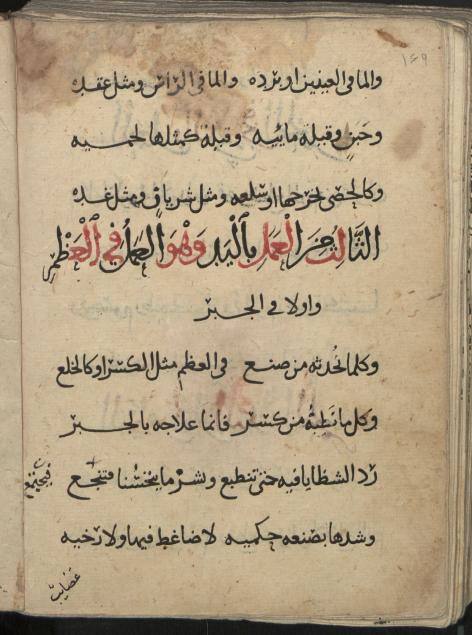 ١٤٩
والما فى العينين او برده والما فى الراس ومثل عقده
وحبن وقيلة مائيه وقيلة كمثلها لحميه
وكالحصى تخرجها او سلعه ومثل شرياق ومثل غده
الثَّالث من العمل باليد وهو العمل في العظم
واولا فى الجبر
وكلما تحدثه من صنع فى العظم مثل الكسر او كالخلع
وكل ما نطبه من كسر فانما علاجه بالجبر
رد الشظايا فيه حتى تنطبع وشر ما ينخسنا فتفجع
فيجتمع
وشدها بصنعه حكميه لا ضاغط فيها ولا رخيه
عصايب